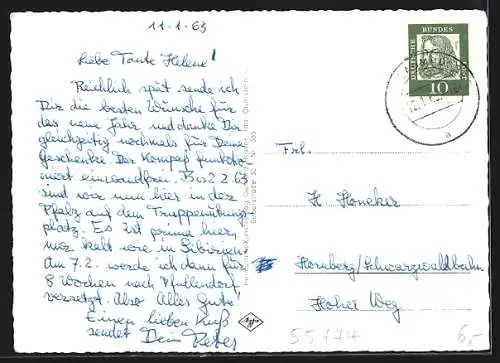 11.1.63
liebe Tante Helene!
Reichlich spät sende ich
Dir die besten Wünsche für
das neue Jahr, und danke Dir
gleichzeitig nochmals für Deine
Geschenke. Der Kompaß funktio-
niert einwandfrei. Bis 2.2.63
sind wir nun hier in der
Pfalz auf dem Truppenübungs-
platz. Es ist prima hier,
nur kalt wie in Sibirien.
Am 7.2. werde ich dann für
8 Wochen nach Pfullendorf
versetzt. Also Alles Gute!
Einen lieben Kuß
sendet Dein Peter
DEUTSCHE BUNDESPOST
10
a
Frl.
H Honeker
Hornberg/Schwarzwaldbahn
Hoher Weg
55774
6,-